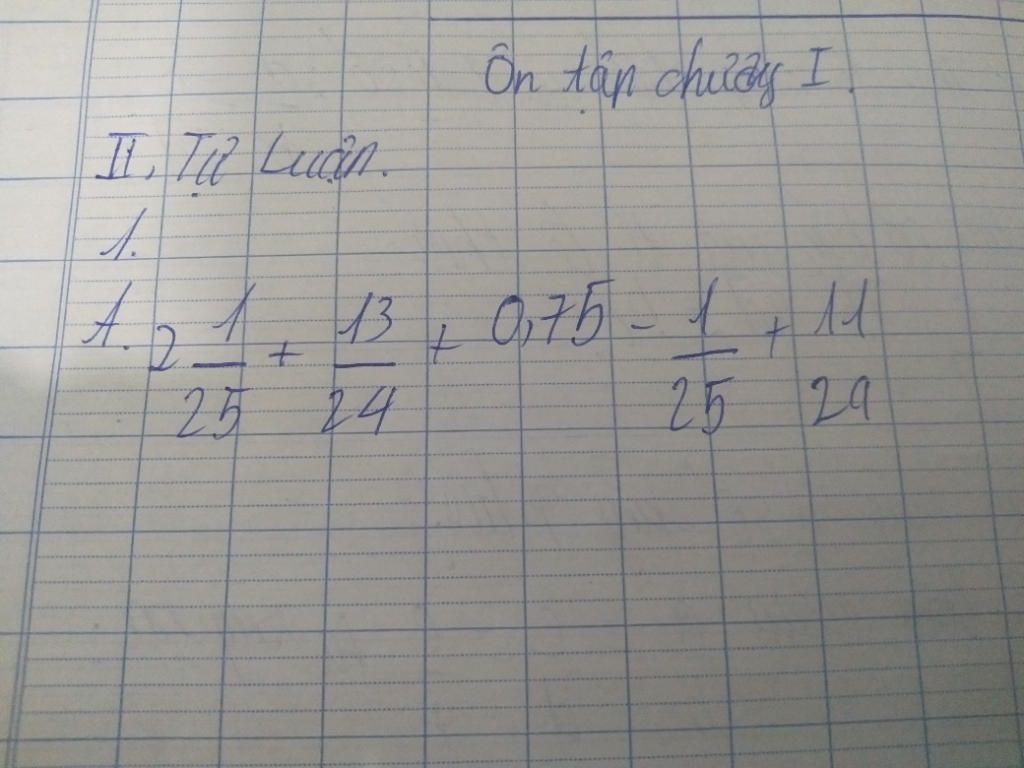 Ôn tập chương I.
II, Tự Luận.
1.
A. 2 1/25 + 13/24 + 0,75 - 1/25 + 11/24